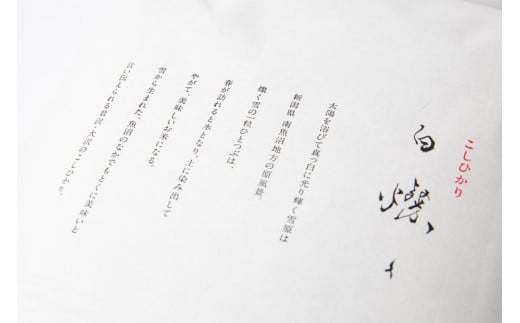 こしひかり
白燦
太陽を浴びて真っ白に光り輝く雪原は
新潟県 南魚沼地方の原風景。
燦く雪の一粒ひとつぶは、
春が訪れると水となり、土に染み出して
やがて、美味しいお米になる。
雪から生まれた、魚沼のなかでもとくに美味いと
言い伝えられる君沢・大沢のこしひかり。